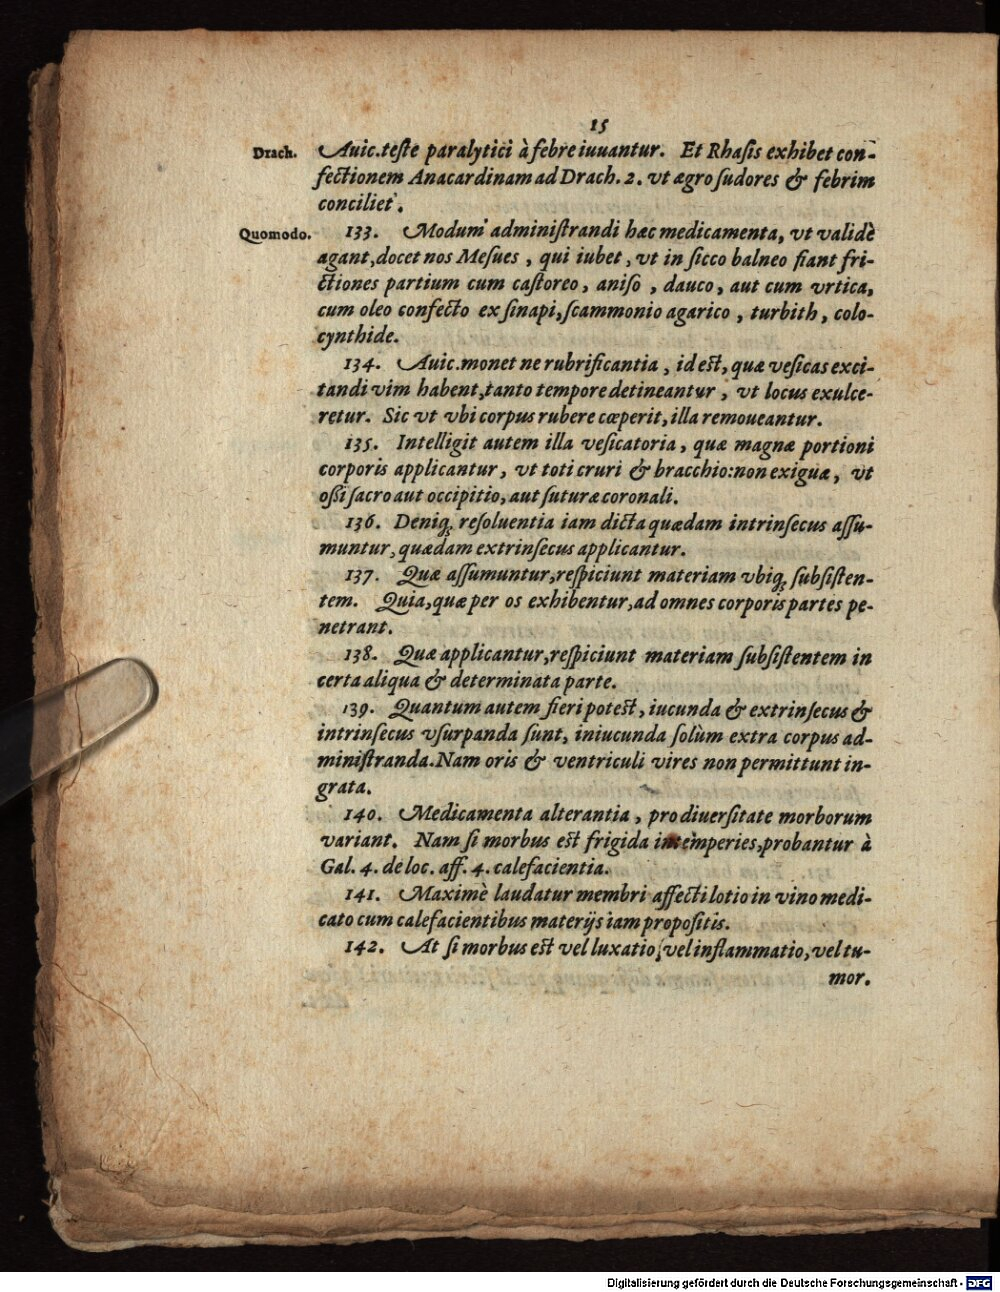 15
Drach. Auic. teſte paralytici à febre iuuantur. Et Rhaſis exhibet con-
fectionem Anacardinam ad Drach. 2. vt ægro ſudores & febrim
conciliet.
Quomodo. 133. Modum adminiſtrandi hæc medicamenta, vt validè
agant, docet nos Meſues, qui iubet, vt in ſicco balneo fiant fri-
ctiones partium cum caſtoreo, aniſo, dauco, aut cum vrtica,
cum oleo confecto ex ſinapi, ſcammonio agarico, turbith, colo-
cynthide.
134. Auic. monet ne rubrificantia, id est, quæ veſicas exci-
tandi vim habent, tanto tempore detineantur, vt locus exulce-
retur. Sic vt vbi corpus rubere cœperit, illa remoueantur.
135. Intelligit autem illa veſicatoria, quæ magnæ portioni
corporis applicantur, vt toti cruri & bracchio: non exiguæ, vt
oſſi ſacro aut occipitio, aut ſuturæ coronali.
136. Deniq; reſoluentia iam dicta quædam intrinſecus aſſu-
muntur, quædam extrinſecus applicantur.
137. Quæ aſſumuntur, reſpiciunt materiam vbiq; ſubſiſten-
tem. Quia, quæ per os exhibentur, ad omnes corporis partes pe-
netrant.
138. Quæ applicantur, reſpiciunt materiam ſubſiſtentem in
certa aliqua & determinata parte.
139. Quantum autem fieri potest, iucunda & extrinſecus &
intrinſecus vſurpanda ſunt, iniucunda ſolùm extra corpus ad-
miniſtranda. Nam oris & ventriculi vires non permittunt in-
grata.
140. Medicamenta alterantia, pro diuerſitate morborum
variant. Nam ſi morbus est frigida intemperies, probantur à
Gal. 4. de loc. aff. 4. calefacientia.
141. Maximè laudatur membri affecti lotio in vino medi-
cato cum calefacientibus materijs iam propoſitis.
142. At ſi morbus est vel luxatio, vel inflammatio, vel tu-
mor.
Digitalisierung gefördert durch die Deutsche Forschungsgemeinschaft - DFG